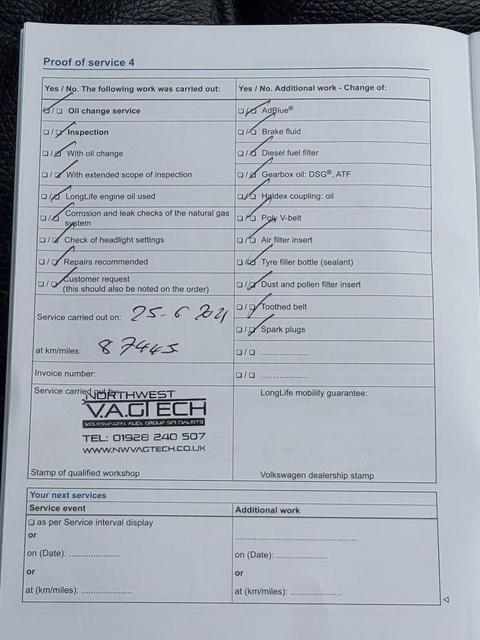 Proof of service 4
Yes / No. The following work was carried out:
Oil change service
Inspection
With oil change
With extended scope of inspection
LongLife engine oil used
Corrosion and leak checks of the natural gas
system
Check of headlight settings
Repairs recommended
Customer request
(this should also be noted on the order)
Service carried out on: 25-6 2021
at km/miles: 87445
Invoice number:
Yes / No. Additional work - Change of:
AdBlue®
Brake fluid
Diesel fuel filter
Gearbox oil: DSG®, ATF
Haldex coupling: oil
Poly V-belt
Air filter insert
Tyre filler bottle (sealant)
Dust and pollen filter insert
Toothed belt
Spark plugs
Service carried out by:
NORTHWEST
V.A.G TECH
VOLKSWAGEN AUDI GROUP SPECIALISTS
TEL: 01928 240 507
WWW.NWVAGTECH.CO.UK
Stamp of qualified workshop
LongLife mobility guarantee:
Volkswagen dealership stamp
Your next services
Service event
as per Service interval display
or
on (Date): ....................
or
at (km/miles): ....................
Additional work
on (Date): ....................
or
at (km/miles): ....................